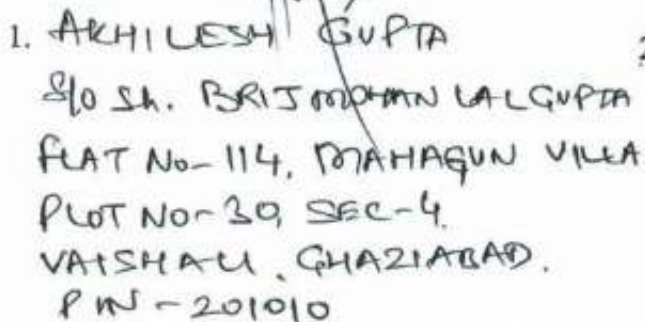 1. AKHILESH GUPTA
S/o Sh. BRIJ MOHAN LAL GUPTA
FLAT No-114, MAHAGUN VILLA
PLOT NO-30, SEC-4.
VAISHALI, GHAZIABAD.
PIN-201010